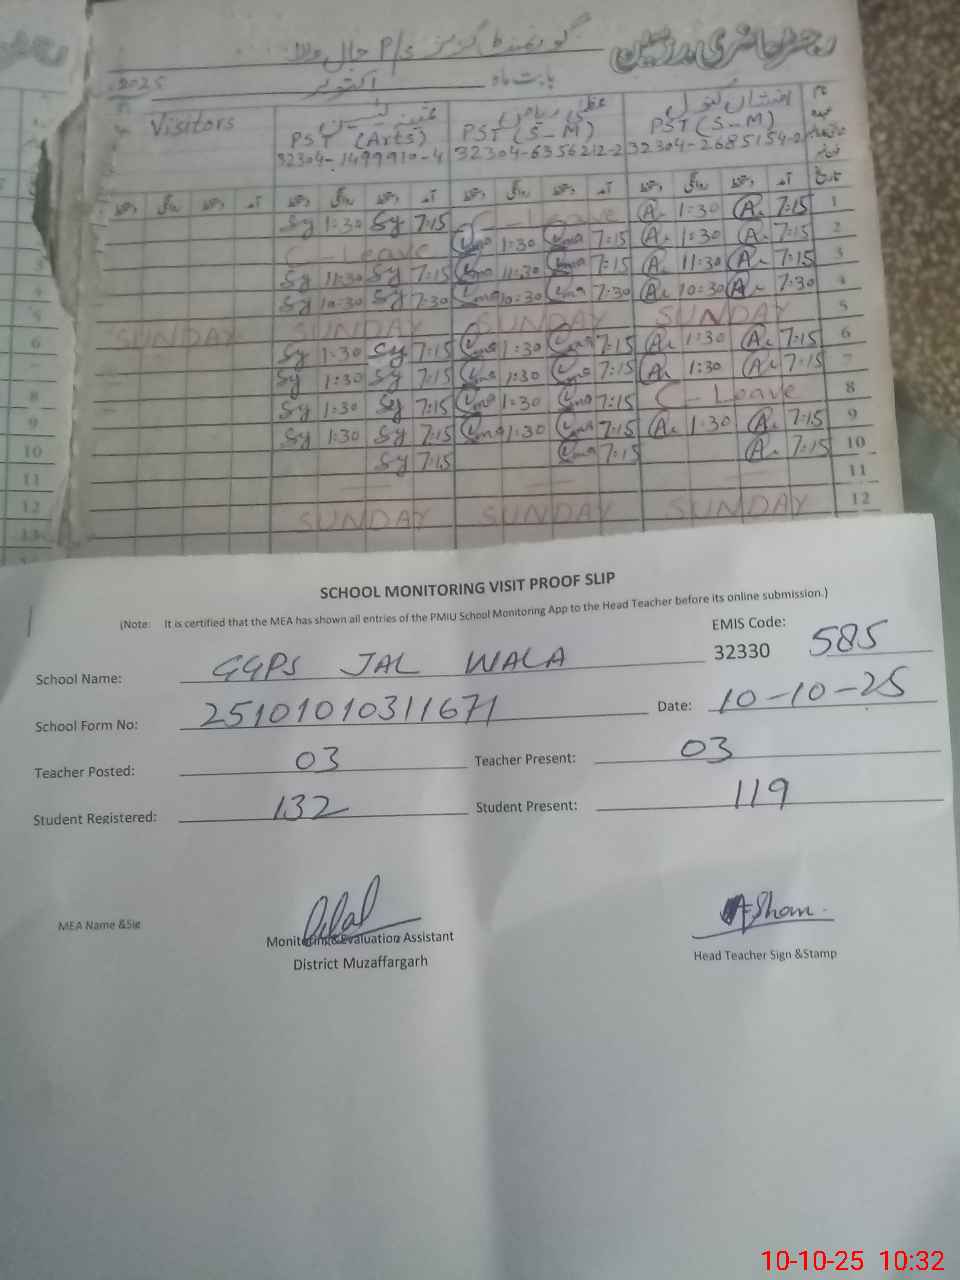 رجسٹر حاضری مدرسین گورنمنٹ گرلز P/S جال والا
بابت ماہ اکتوبر 2025
Visitors
PST (Arts) PST (S-M) PST (S-M)
32304-1499910-4 32304-6356212-2 32304-2685154-2
Sy 1:30 Sy 7:15 C-Leave A. 1:30 A. 7:15 1
C-Leave Uma 1:30 Uma 7:15 A. 1:30 A. 7:15 2
Sy 11:30 Sy 7:15 Uma 11:30 Uma 7:15 A. 11:30 A. 7:15 3
Sy 10:30 Sy 7:30 Uma 10:30 Uma 7:30 A. 10:30 A. 7:30 4
SUNDAY SUNDAY SUNDAY SUNDAY 5
Sy 1:30 Sy 7:15 Uma 1:30 Uma 7:15 A. 1:30 A. 7:15 6
Sy 1:30 Sy 7:15 Uma 1:30 Uma 7:15 A. 1:30 A. 7:15 7
Sy 1:30 Sy 7:15 Uma 1:30 Uma 7:15 C-Leave 8
Sy 1:30 Sy 7:15 Uma 1:30 Uma 7:15 A. 1:30 A. 7:15 9
Sy 7:15 Uma 7:15 A. 7:15 10
11
SUNDAY SUNDAY SUNDAY 12
SCHOOL MONITORING VISIT PROOF SLIP
(Note: It is certified that the MEA has shown all entries of the PMIU School Monitoring App to the Head Teacher before its online submission.)
EMIS Code:
School Name: GGPS JAL WALA 32330 585
School Form No: 25101010311671 Date: 10-10-25
Teacher Posted: 03 Teacher Present: 03
Student Registered: 132 Student Present: 119
MEA Name &Sig Bilal Afshan.
Monitoring&Evaluation Assistant Head Teacher Sign &Stamp
District Muzaffargarh
10-10-25 10:32